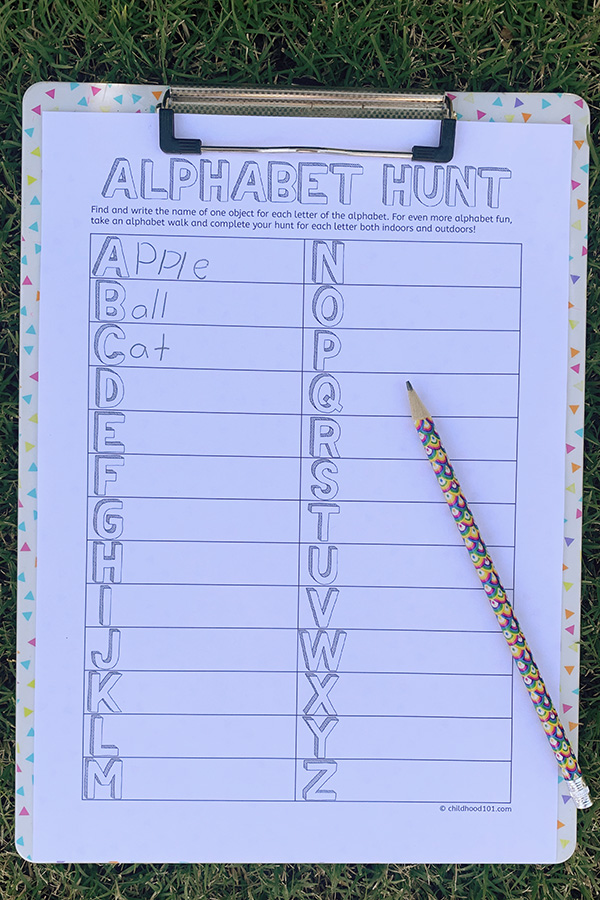 ALPHABET HUNT
Find and write the name of one object for each letter of the alphabet. For even more alphabet fun,
take an alphabet walk and complete your hunt for each letter both indoors and outdoors!
APPle
Ball
Cat
D
E
F
G
H
I
J
K
L
M
N
O
P
Q
R
S
T
U
V
W
X
Y
Z
© childhood101.com